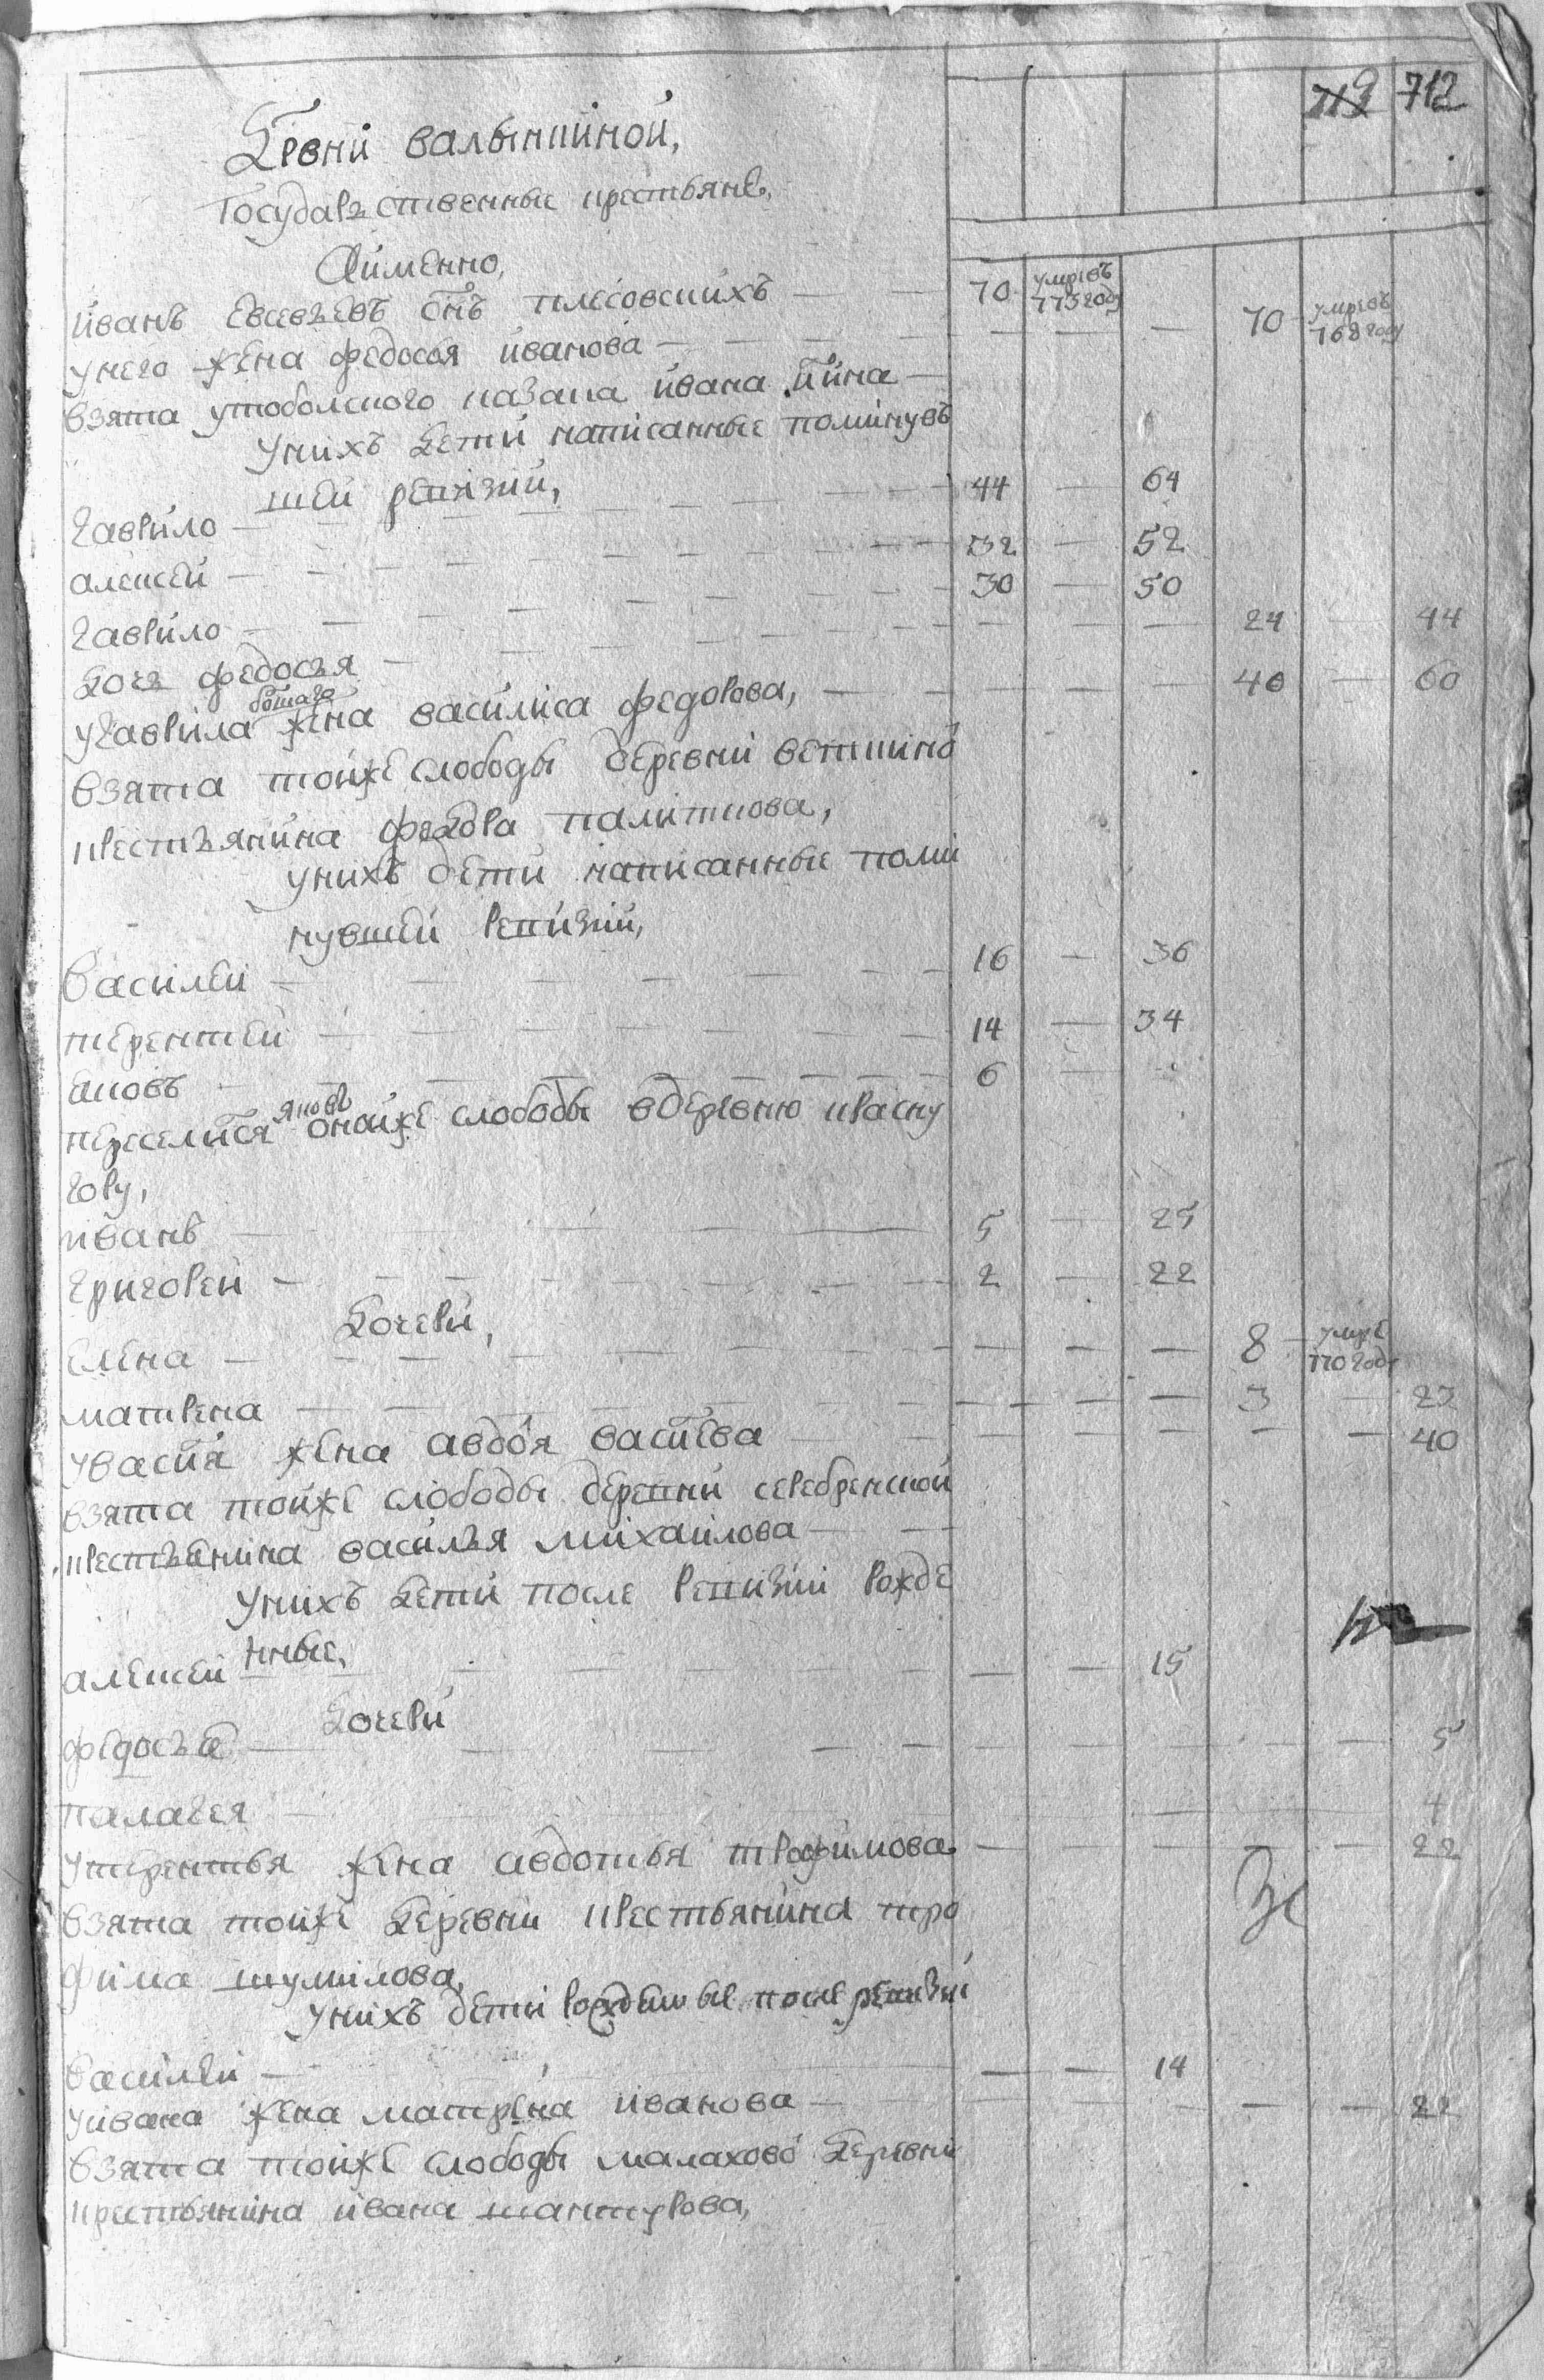 719 712
Древни валынкиной,
Государственные крестьяне.
А именно,
иванъ евсевьевъ снъ плесовскихъ — 70 умревъ 773году
унего жена федосья иванова — 70 умревъ 768году
взята утоболского казака ивана
Унихъ дети написанные поминув
шей ревизии,
гаврило — 44 — 64
алексей — 32 — 52
гаврило — 30 — 50
дочь федосья — 24 — 44
угаврила болшаго жена василиса федорова, — 40 — 60
взята тойже слободы деревни веткино
крестьянина федора палиткова,
унихъ дети написанные поми
нувшей ревизии,
василей — 16 — 36
терентей — 14 — 34
яковъ — 6 —
переселился яковъ онойже слободы вдеревню красну
гору,
иванъ — 5 — 25
григорей — 2 — 22
дочери,
елена — 8 умре 770году
матрена — 3 — 23
увасиля жена авдоя васиева — 40
взята тойже слободы деревни серебренской
крестьянина василья михаилова —
Унихъ дети после ревизии рожде
нные,
алексей — 15
дочери
федосья — 5
палагея — 4
утерентья жена авдотья трофимова — 22
взята тойже деревни крестьянина тро
фима шумилова,
унихъ дети рожденные после ревизии
василей — 14
уивана жена матрена иванова — 22
взята тойже слободы малахово деревни
крестьянина ивана шантурова,